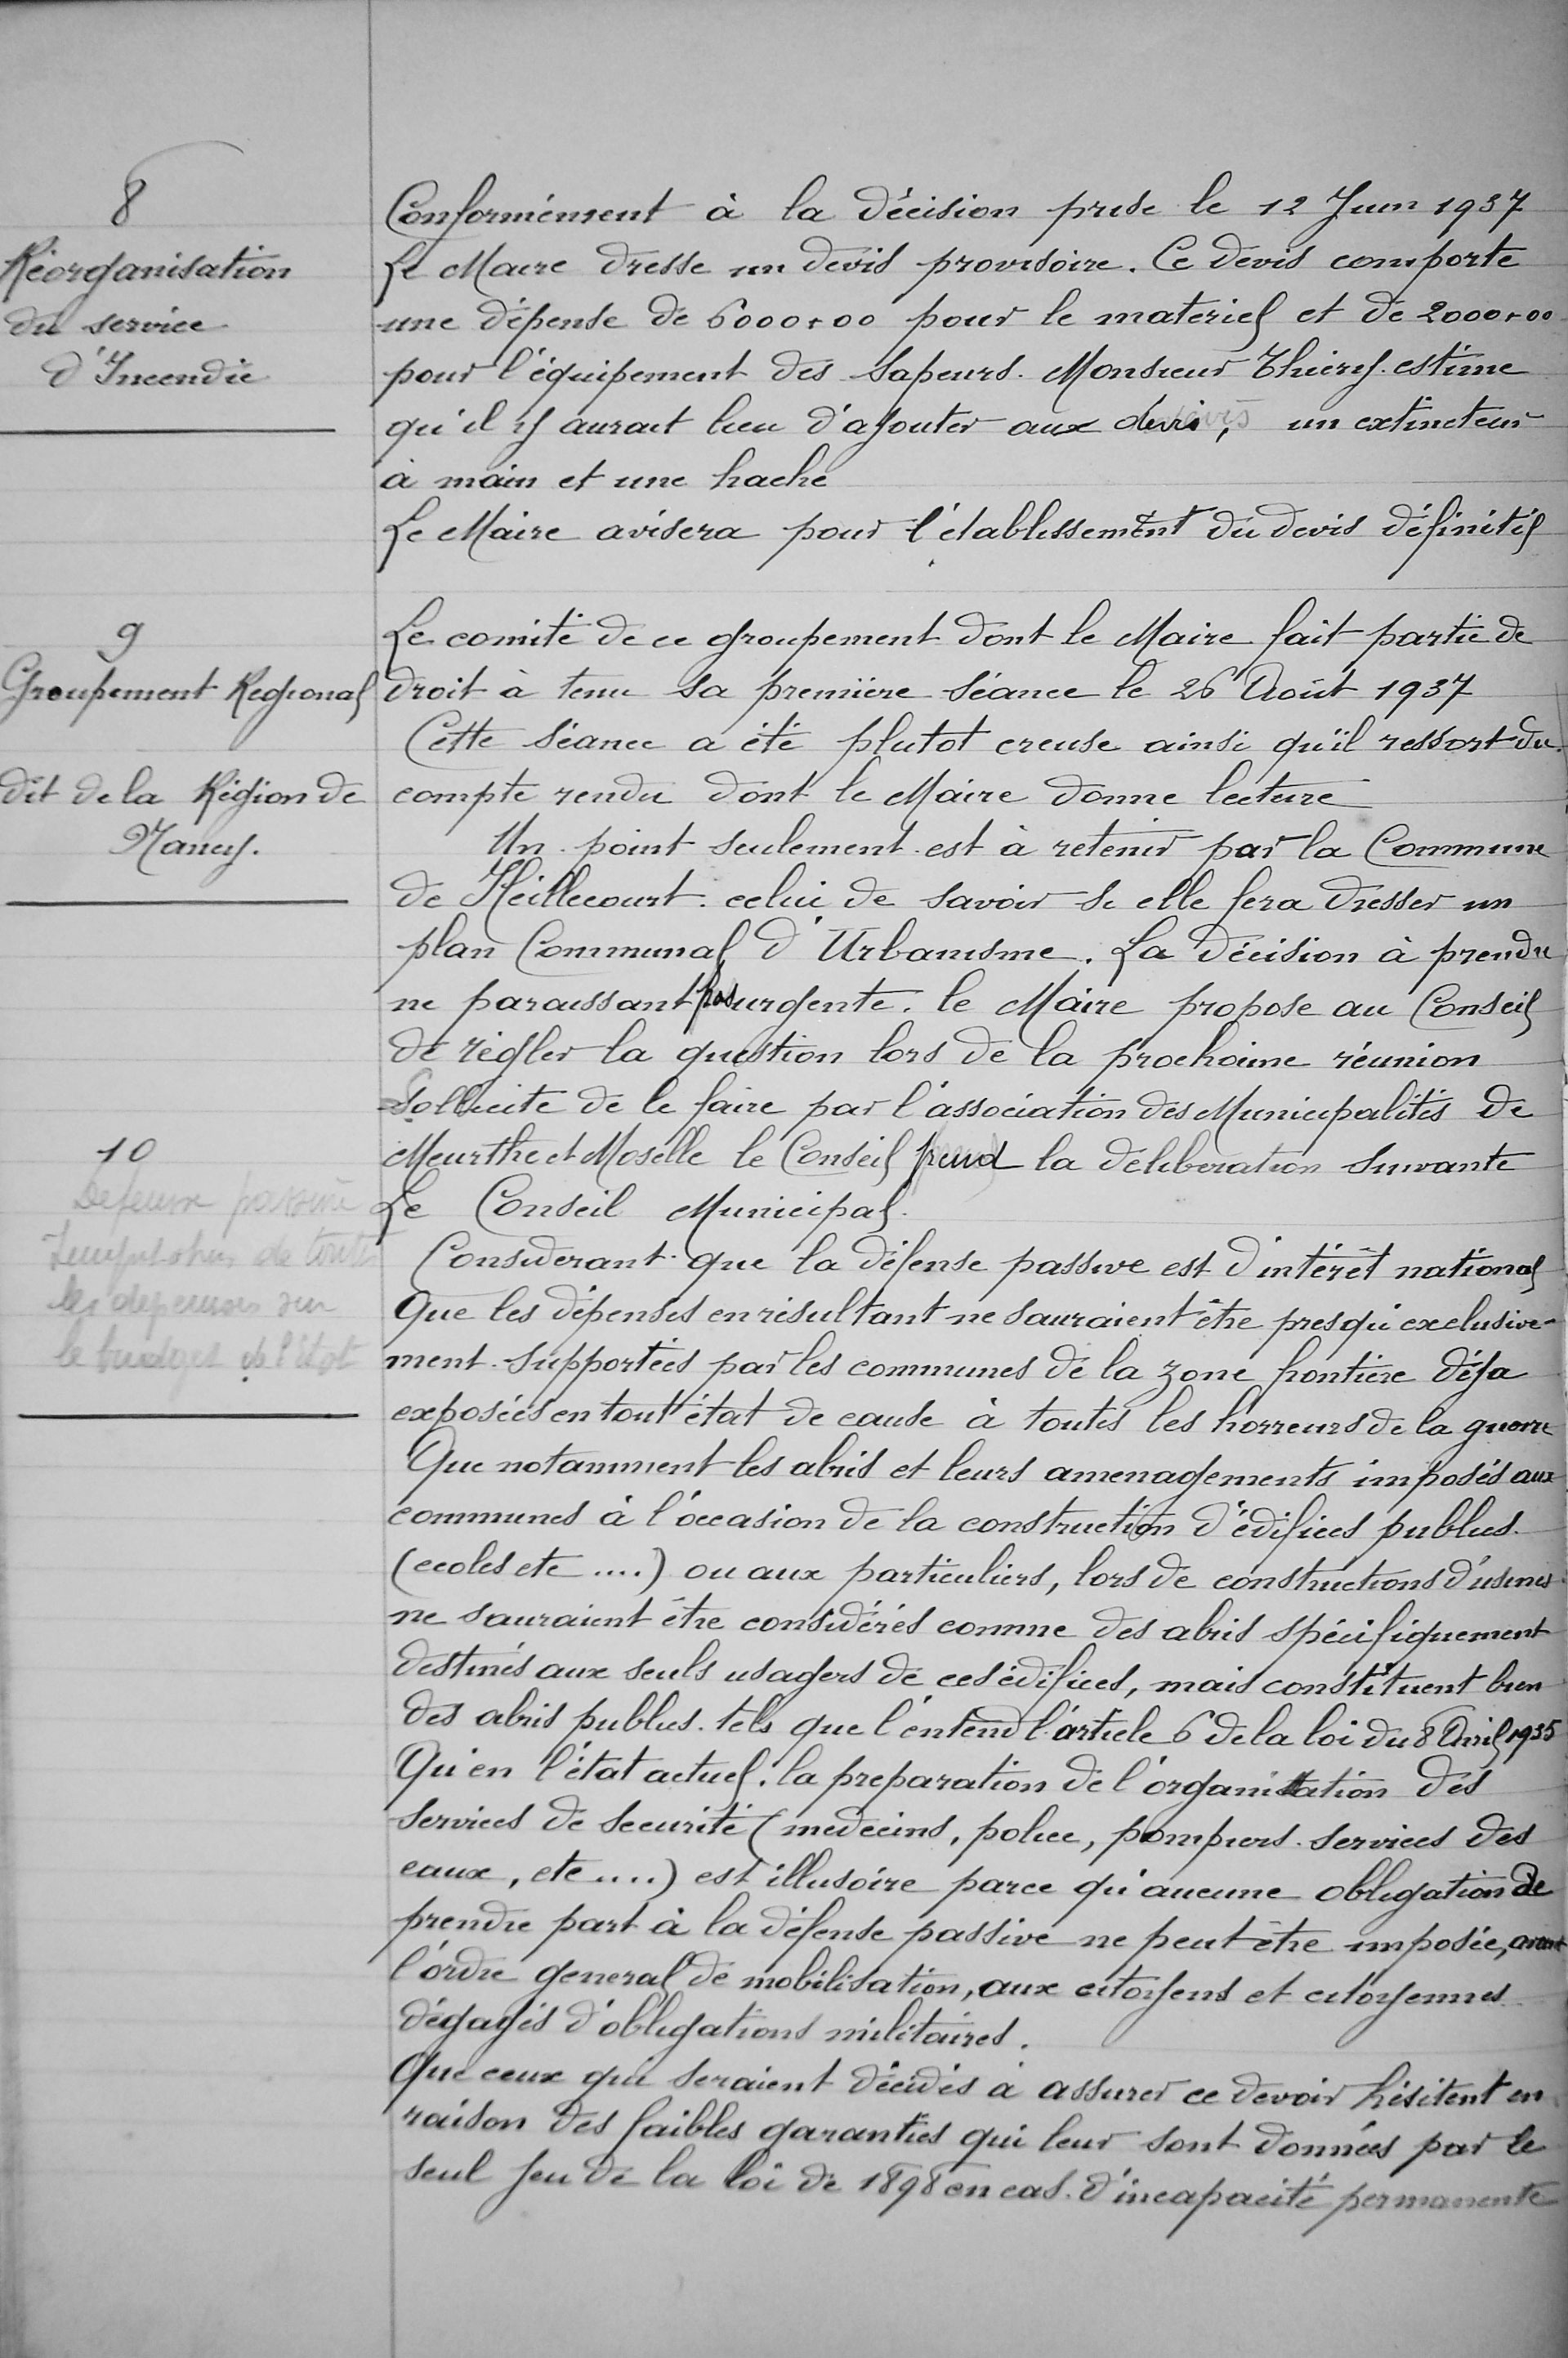 8
Réorganisation
du service
d'Incendie
Conformément à la décision prise le 12 Juin 1937
Le Maire dresse un devis provisoire. Ce devis comporte
une dépense de 6000,00 pour le matériel et de 2000,00
pour l'équipement des sapeurs. Monsieur Thiery estime
qu'il y aurait lieu d'ajouter aux devis, un extincteur
à main et une hache
Le Maire avisera pour l'établissement du devis définitif
9
Groupement Regional
dit de la Région de
Nancy.
Le comité de ce groupement dont le Maire fait partie de
droit à tenu sa première séance le 26 Août 1937
Cette séance a été plutot creuse ainsi qu'il ressort du
compte rendu dont le Maire donne lecture
Un point seulement est à retenir par la Commune
de Heillecourt. celui de savoir si elle fera dresser un
plan Communal d'Urbanisme. La décision à prendre
ne paraissant pas urgente. le Maire propose au Conseil
de régler la question lors de la prochaine réunion
10
Defense passive
Imputation de toutes
les depenses sur
le budget de l'état
Sollicite de le faire par l'association des Municipalités de
Meurthe et Moselle le Conseil prend la déliberation suivante
Le Conseil Municipal.
Considerant que la défense passive est d'intérêt national
Que les dépenses en résultant ne sauraient être presqu'exclusive-
ment supportées par les communes de la zone frontière déja
exposées en tout état de cause à toutes les horreurs de la guerre
Que notamment les abris et leurs amenagements imposés aux
communes à l'occasion de la construction d'édifices publics.
(ecoles etc ....) ou aux particuliers, lors de constructions d'usines
ne sauraient être considérés comme des abris spécifiquement
destinés aux seuls usagers de ces édifices, mais constituent bien
des abris publics. tels que l'entend l'article 6 de la loi du 8 Avril 1935
Qu'en l'état actuel. la preparation de l'organisation des
services de securité (medecins, police, pompiers. services des
eaux, etc ....) est illusoire parce qu'aucune obligation de
prendre part à la défense passive ne peut être imposée, avant
l'ordre general de mobilisation, aux citoyens et citoyennes
dégagés d'obligations militaires.
Que ceux qui seraient décidés à assurer ce devoir hésitent en
raison des faibles garanties qui leur sont données par le
seul jeu de la loi de 1898 en cas d'incapacité permanente